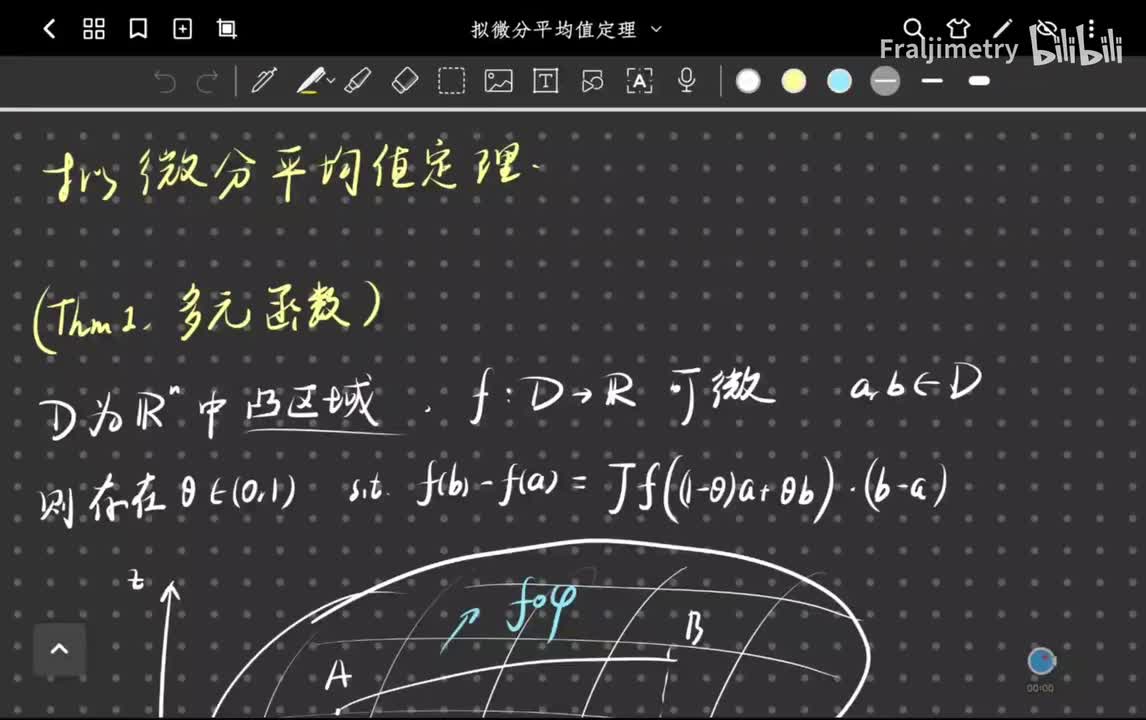 拟微分平均值定理
Fraljimetry bilibili
拟微分平均值定理.
(Thm 1. 多元函数)
D为ℝⁿ中凸区域. f:D→ℝ 可微 a,b∈D
则存在 θ∈(0,1) s.t. f(b)-f(a)=Jf((1-θ)a+θb)·(b-a)
z
f∘φ
B
A
00:00